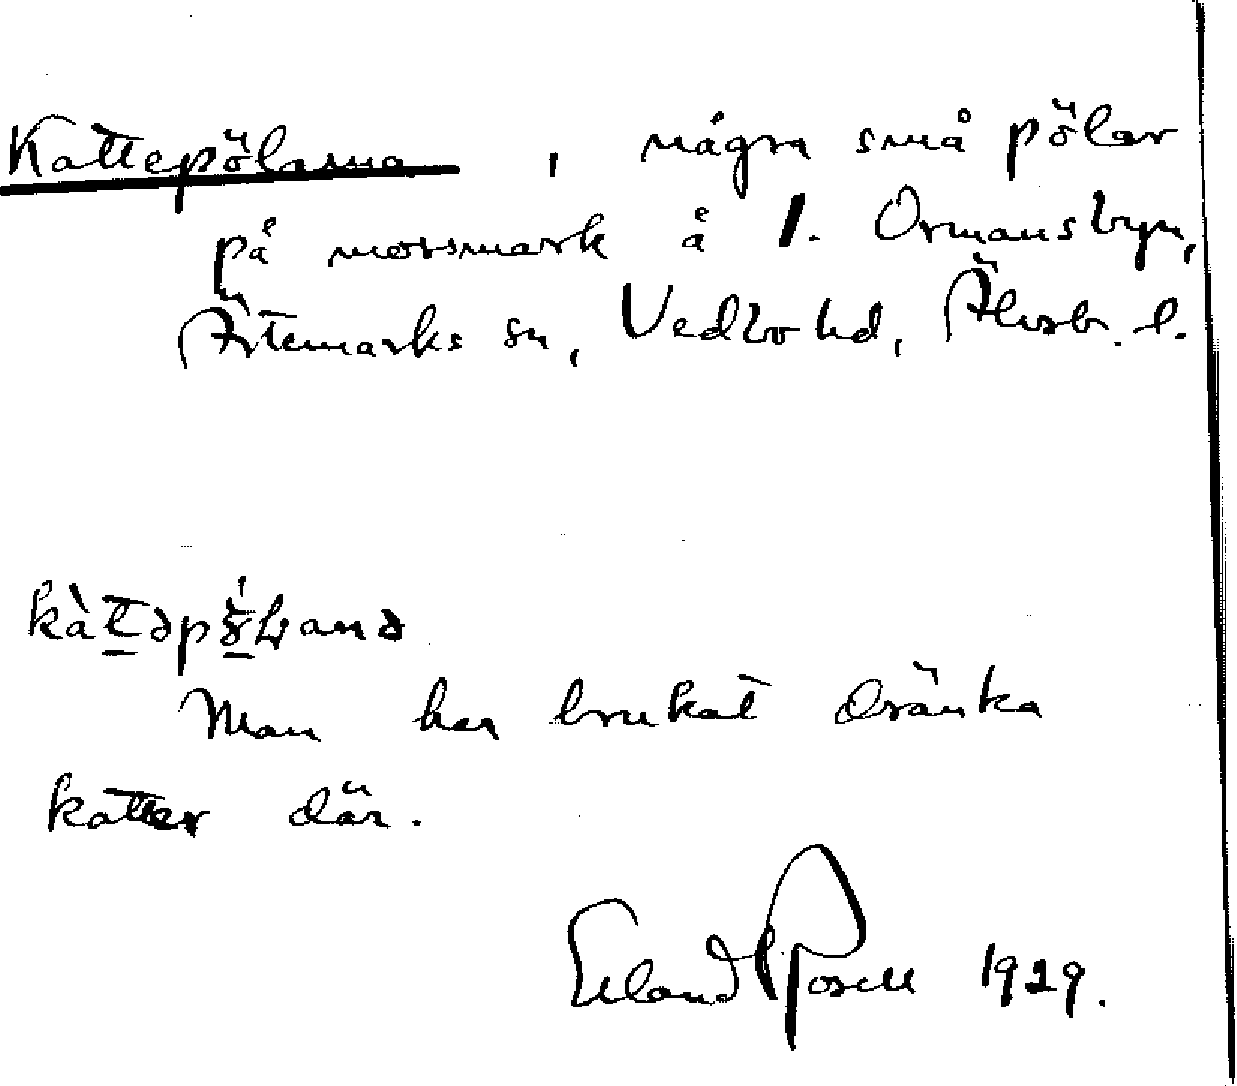 Kattepölarna, några små pölar
på morsmark å 1. Ormansbyn,
Ärtemarks sn, Vedbo hd, Älvsb. l.
Man har brukat dränka
katter där.
Erland Rosell 1929.